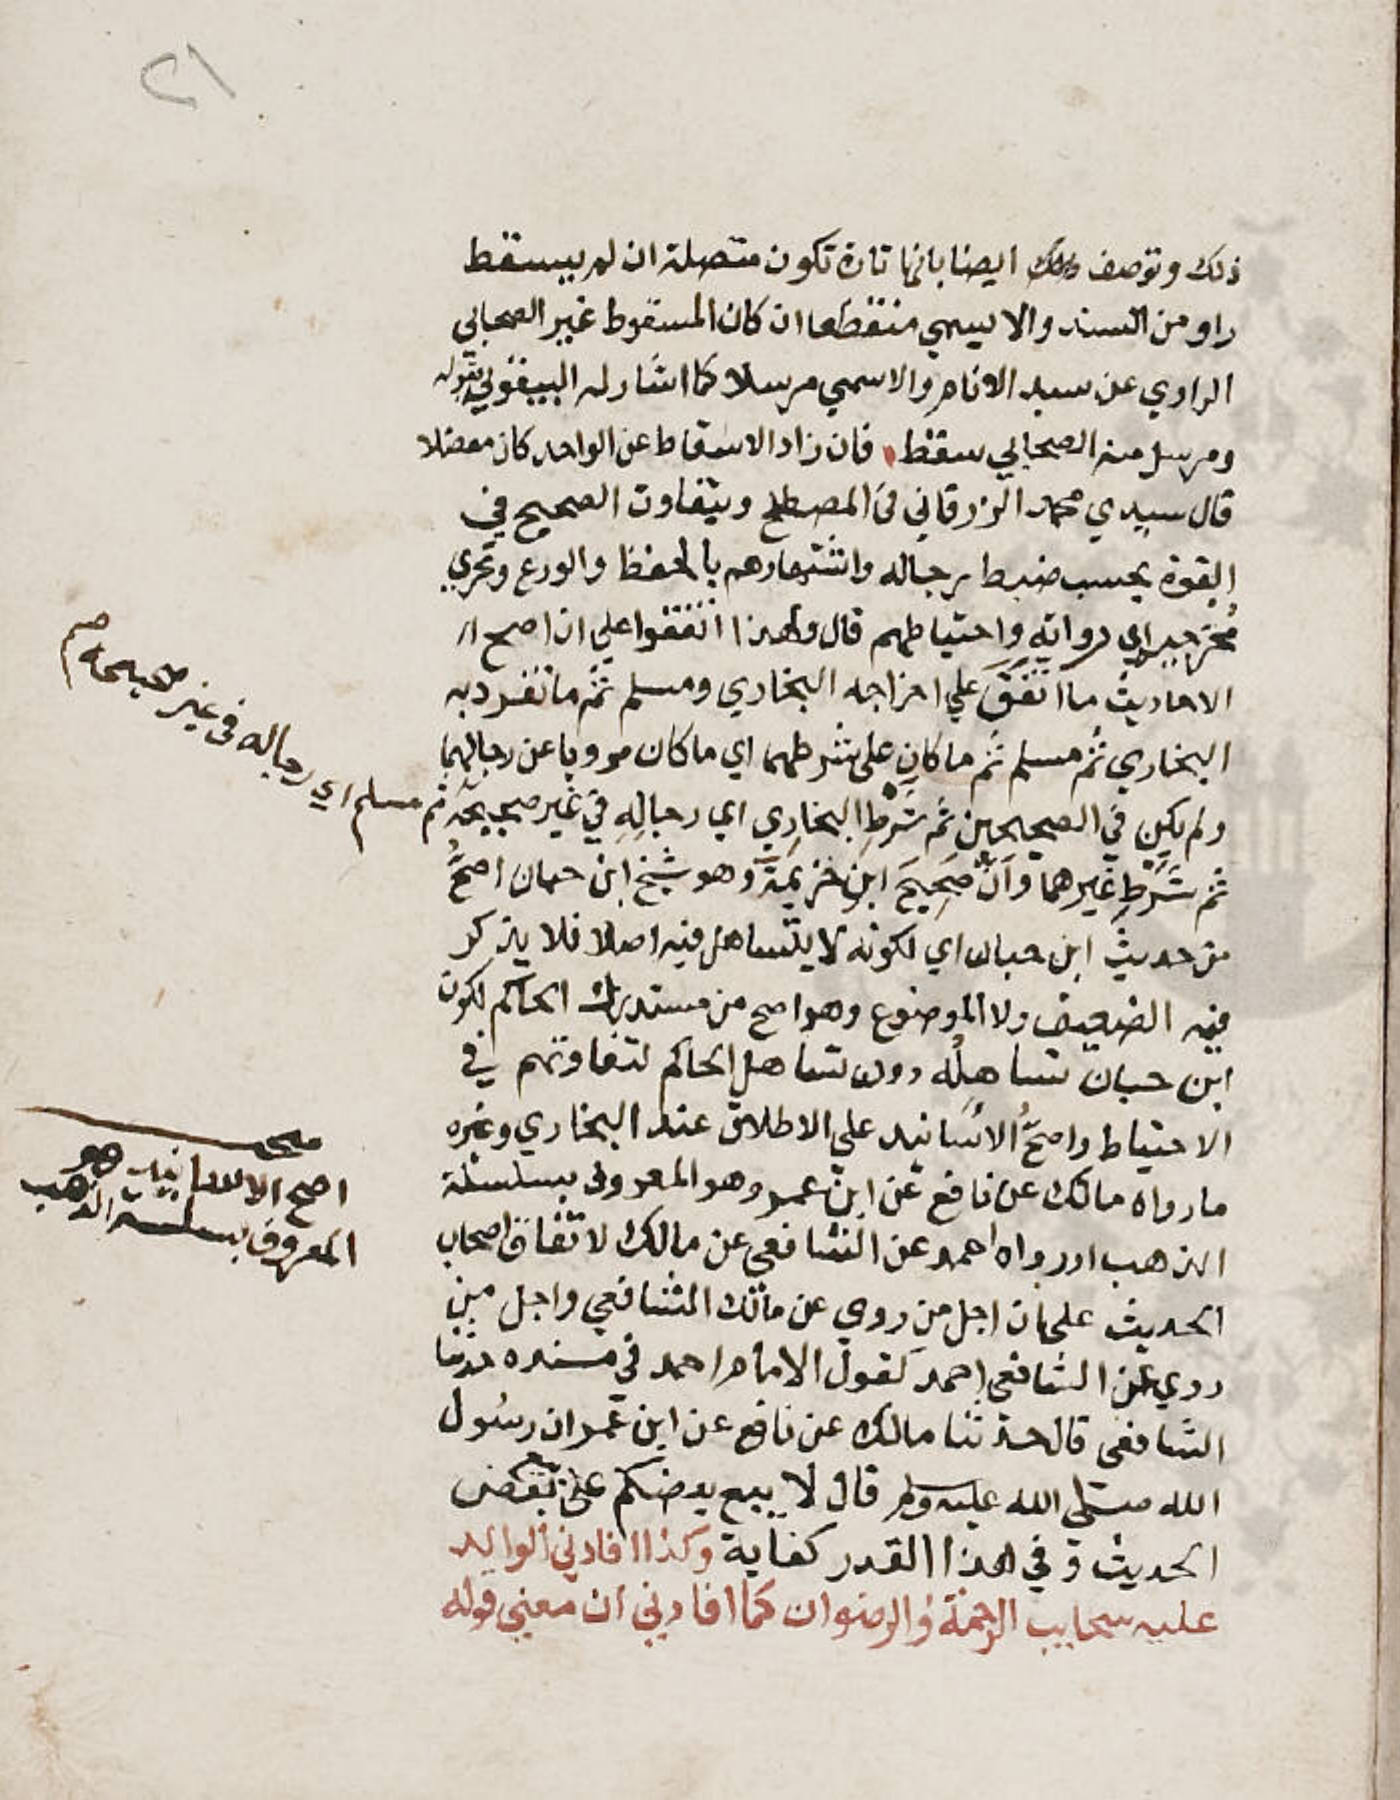 ٢١
ذلك وتوصف ايضا بانها تارة تكون متصلة ان لم يسقط
راو من السند والا يسمي منقطعا ان كان المسقوط غير الصحابي
الراوي عن سيد الانام والاسمي مرسلا كما اشار له البيقوني بقوله
ومرسل منه الصحابي سقط فان زاد الاسقاط عن الواحد كان معضلا
قال سيدي محمد الزرقاني في المصطلح ويتفاوت الصحيح في
القوة بحسب ضبط رجاله واشتهارهم بالحفظ والورع وتحري
مخرجيه اي رواته واحتياطهم قال ولهذا اتفقوا علي ان اصح
الاحاديث ما اتفق علي اخراجه البخاري ومسلم ثم ما انفرد به
البخاري ثم مسلم ثم ما كان علي شرطهما اي ما كان مرويا عن رجالهما
ولم يكن في الصحيحين ثم شرط البخاري اي رجاله في غير صحيحه
ثم مسلم اي رجاله في غير صحيحه صح
ثم شرط غيرهما وان صحيح ابن خزيمة وهو شيخ ابن حبان اصح
من حديث ابن حبان اي لكونه لا يتساهل فيه اصلا فلا يذكر
فيه الضعيف ولا الموضوع وهو اصح من مستدرك الحاكم لكون
ابن حبان تساهله دون تساهل الحاكم لتفاوتهم في
الاحتياط واصح الاسانيد علي الاطلاق عند البخاري وغيره
ما رواه مالك عن نافع عن ابن عمر وهو المعروف بسلسلة
الذهب او رواه احمد عن الشافعي عن مالك لاتفاق اصحاب
الحديث علي ان اجل من روي عن مالك الشافعي واجل من
روي عن الشافعي احمد كقول الامام احمد في مسنده حدثنا
الشافعي قال حدثنا مالك عن نافع عن ابن عمر ان رسول
الله صلي الله عليه وسلم قال لا يبيع بعضكم علي بيع بعض
الحديث وفي هذا القدر كفاية وكذا افادني الوالد
عليه سحايب الرحمة والرضوان كما افادني ان معني قوله
اصح الاسانيد هو
المعروف بسلسلة الذهب